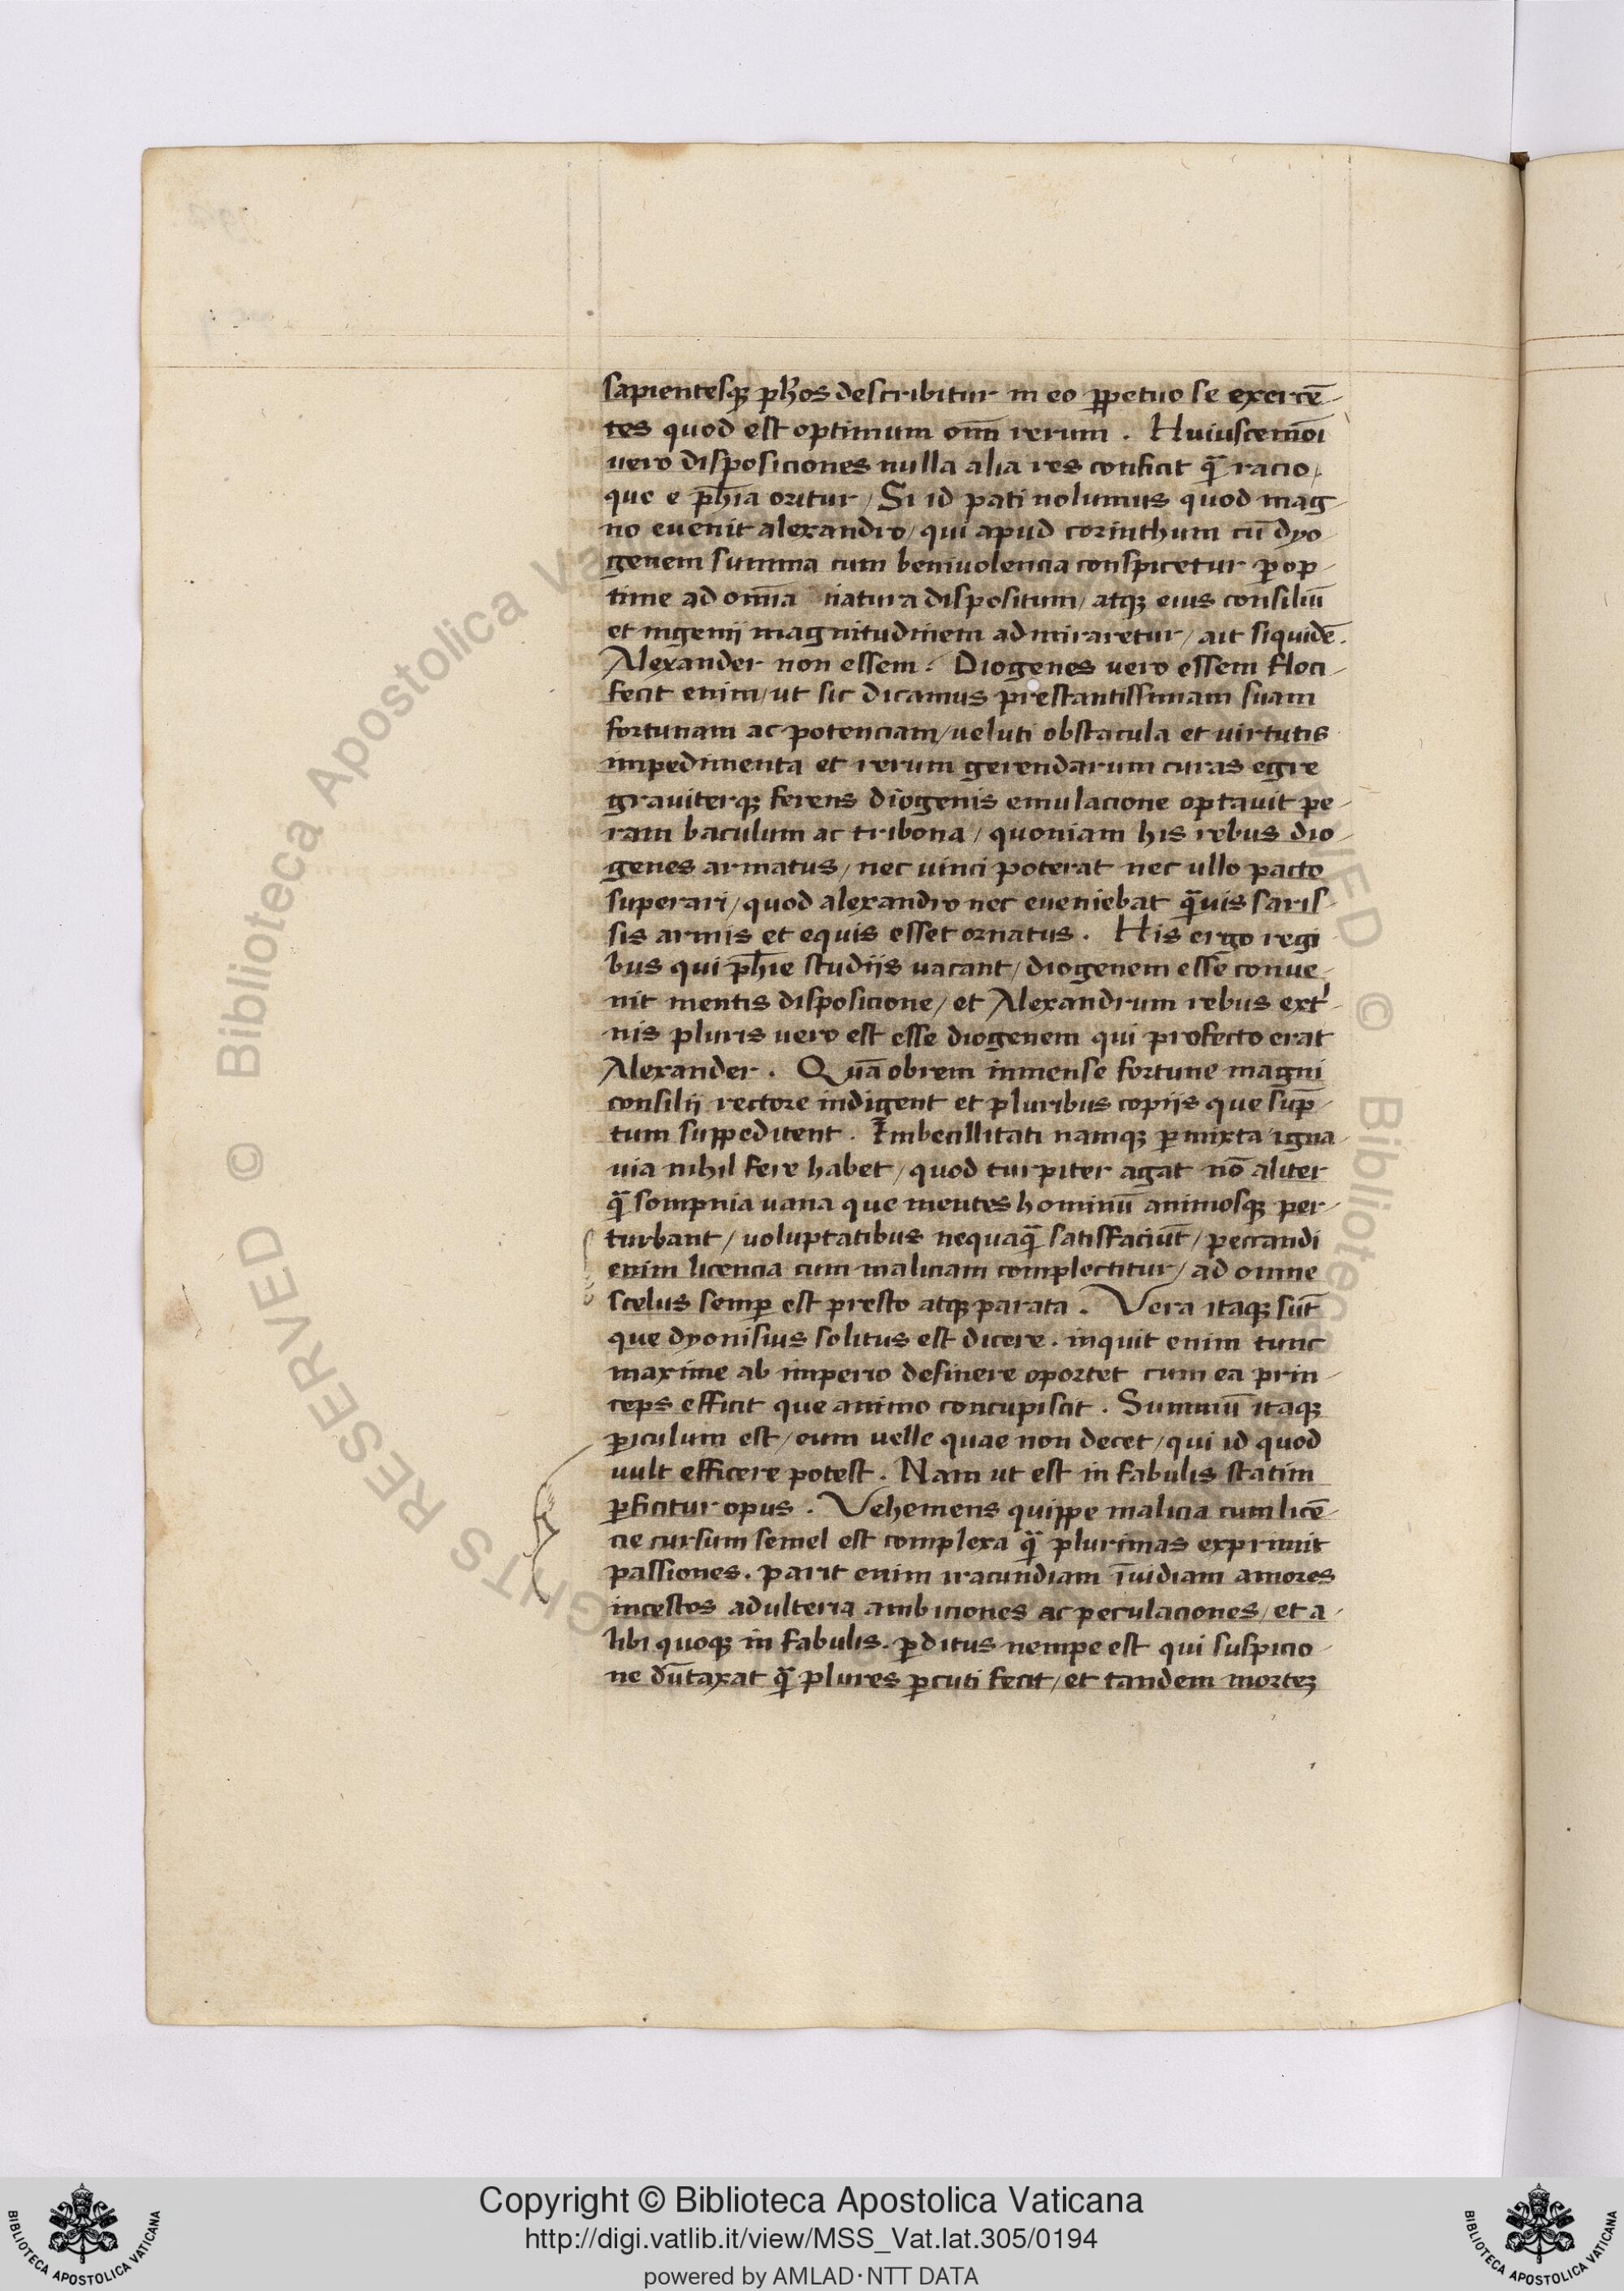 sapientesqꝫ ph̄os describitur in eo ꝑpetuo se exercē-
tes quod est optimum om̄ rerum. Huiuscemōi
uero disposiciones nulla alia res conficit qᷓ racio,
que e ph̄ia oritur / Si id pati nolumus quod mag-
no euenit alexandro / qui apud corinthum cū dyo-
genem summa cum beniuolencia conspicetur ꝑ op-
time ad om̄ia natura dispositum / atqꝫ eius consiliū
et ingenij magnitudinem admiraretur / ait siquidē.
Alexander non essem. Diogenes uero essem floci-
fecit enim / ut sic dicamus prestantissimam suam
fortunam ac potenciam / ueluti obstacula et uirtutis
impedimenta et rerum gerendarum curas egre
grauiterqꝫ ferens diogenis emulacione optauit pe-
ram baculum ac tribona / quoniam his rebus dio-
genes armatus / nec uinci poterat nec ullo pacto
superari / quod alexandro nec eueniebat qᷓuis saris-
sis armis et equis esset ornatus. His ergo regi
bus qui ph̄ie studijs uacant / diogenem esse conue-
nit mentis disposicione / et Alexandrum rebus ext'
nis pluris uero est esse diogenem qui profecto erat
Alexander. Quā obrem inmense fortune magni
consilij rectore indigent et pluribus copijs que sūp-
tum suppeditent. Imbecillitati namqꝫ ꝑmixta igna-
uia nihil fere habet / quod turpiter agat nō aliter
qᷓ sompnia uana que mentes hominū animosqꝫ per-
turbant / uoluptatibus nequaqᷓ satisfaciūt / peccandi
enim licencia cum maliciam complectitur / ad omne
scelus semꝑ est presto atqꝫ parata. Vera itaqꝫ sūt
que dyonisius solitus est dicere. inquit enim tunc
maxime ab imperio desinere oportet cum ea prin-
ceps efficit que animo concupiscit. Summū itaqꝫ
ꝑiculum est / eum uelle quae non decet / qui id quod
uult efficere potest. Nam ut est in fabulis statim
ꝑficitur opus. Vehemens quippe malicia cum licē-
cie cursum semel est complexa qᷓ plurimas exprimit
passiones. parit enim iracundiam īuidiam amores
incestos adulteria ambiciones ac peculaciones / et a-
libi quoqꝫ in fabulis. ꝑditus nempe est qui suspicio-
ne dūtaxat qᷓ plures ꝑcuti fecit / et tandem morteꝫ
© Biblioteca Apostolica Vaticana
RIGHTS RESERVED
© Biblioteca
Copyright © Biblioteca Apostolica Vaticana
http://digi.vatlib.it/view/MSS_Vat.lat.305/0194
powered by AMLAD·NTT DATA
BIBLIOTECA APOSTOLICA VATICANA
BIBLIOTECA APOSTOLICA VATICANA